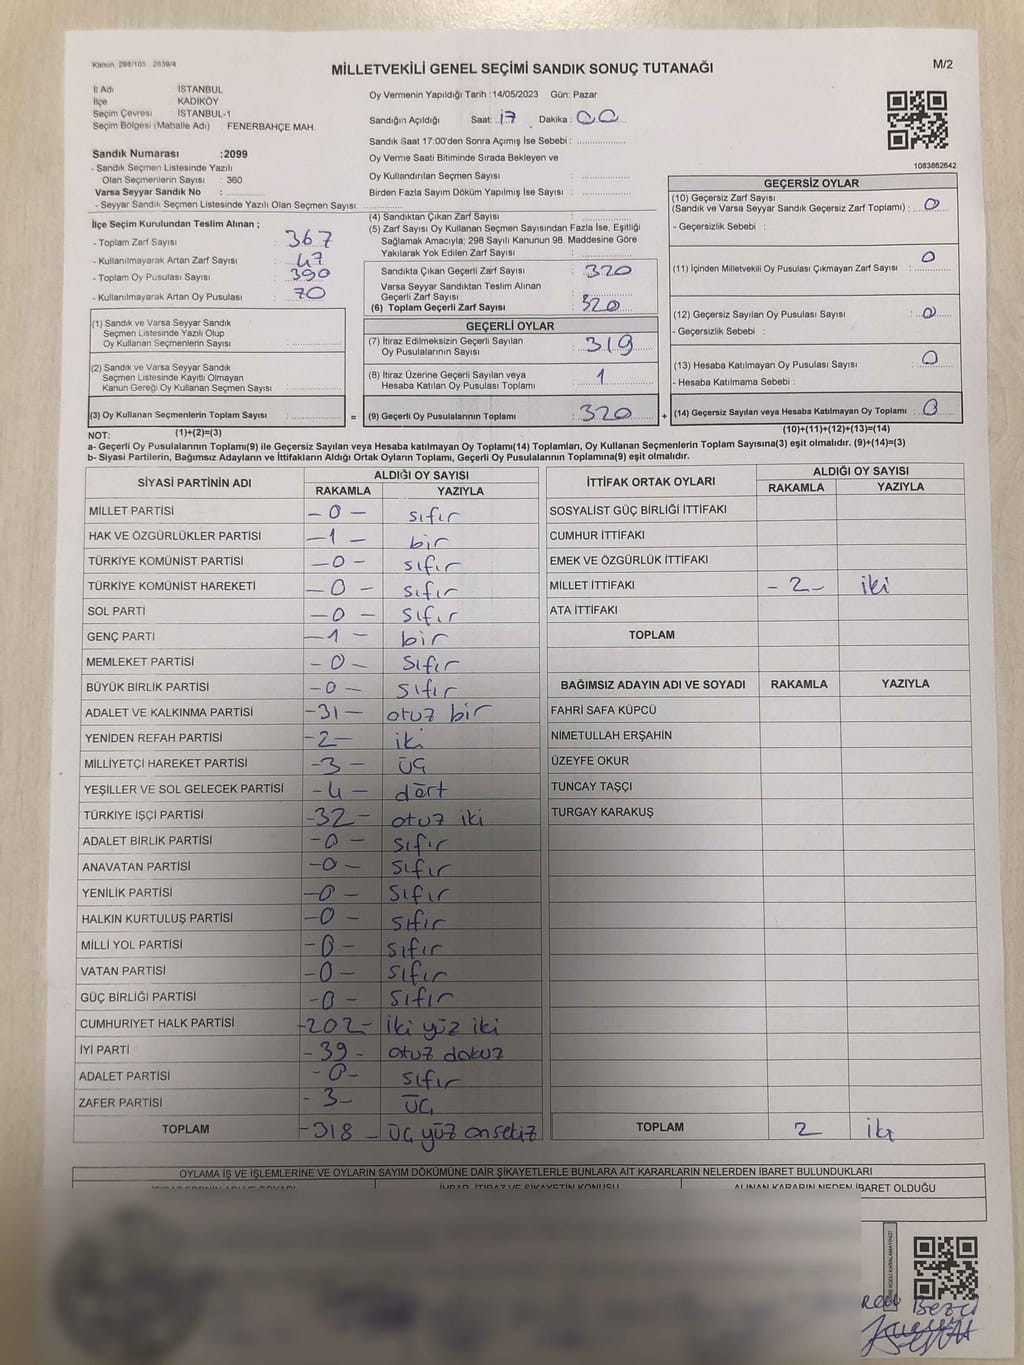 Kanun: 298/105 : 2839/4
MİLLETVEKİLİ GENEL SEÇİMİ SANDIK SONUÇ TUTANAĞI
M/2
İl Adı İSTANBUL
İlçe KADIKÖY
Seçim Çevresi İSTANBUL-1
Seçim Bölgesi (Mahalle Adı) : FENERBAHÇE MAH.
Sandık Numarası :2099
- Sandık Seçmen Listesinde Yazılı
Olan Seçmenlerin Sayısı : 360
Varsa Seyyar Sandık No :
- Seyyar Sandık Seçmen Listesinde Yazılı Olan Seçmen Sayısı:
Oy Vermenin Yapıldığı Tarih :14/05/2023 Gün: Pazar
Sandığın Açıldığı Saat: 17 Dakika : 00
Sandık Saat 17:00'den Sonra Açımış İse Sebebi :
Oy Verme Saati Bitiminde Sırada Bekleyen ve
Oy Kullandırılan Seçmen Sayısı :
Birden Fazla Sayım Döküm Yapılmış İse Sayısı :
1083862642
İlçe Seçim Kurulundan Teslim Alınan ;
- Toplam Zarf Sayısı : 367
- Kullanılmayarak Artan Zarf Sayısı : 47
- Toplam Oy Pusulası Sayısı : 390
- Kullanılmayarak Artan Oy Pusulası : 70
(1) Sandık ve Varsa Seyyar Sandık
Seçmen Listesinde Yazılı Olup
Oy Kullanan Seçmenlerin Sayısı :
(2) Sandık ve Varsa Seyyar Sandık
Seçmen Listesinde Kayıtlı Olmayan
Kanun Gereği Oy Kullanan Seçmen Sayısı :
(3) Oy Kullanan Seçmenlerin Toplam Sayısı :
(1)+(2)=(3)
(4) Sandıktan Çıkan Zarf Sayısı :
(5) Zarf Sayısı Oy Kullanan Seçmen Sayısından Fazla İse, Eşitliği
Sağlamak Amacıyla; 298 Sayılı Kanunun 98. Maddesine Göre
Yakılarak Yok Edilen Zarf Sayısı :
Sandıkta Çıkan Geçerli Zarf Sayısı : 320
Varsa Seyyar Sandıktan Teslim Alınan
Geçerli Zarf Sayısı :
(6) Toplam Geçerli Zarf Sayısı : 320
GEÇERLİ OYLAR
(7) İtiraz Edilmeksizin Geçerli Sayılan
Oy Pusulalarının Sayısı : 319
(8) İtiraz Üzerine Geçerli Sayılan veya
Hesaba Katılan Oy Pusulası Toplamı : 1
= (9) Geçerli Oy Pusulalarının Toplamı : 320 +
GEÇERSİZ OYLAR
(10) Geçersiz Zarf Sayısı
(Sandık ve Varsa Seyyar Sandık Geçersiz Zarf Toplamı) : 0
- Geçersizlik Sebebi :
(11) İçinden Milletvekili Oy Pusulası Çıkmayan Zarf Sayısı : 0
(12) Geçersiz Sayılan Oy Pusulası Sayısı : 0
- Geçersizlik Sebebi :
(13) Hesaba Katılmayan Oy Pusulası Sayısı : 0
- Hesaba Katılmama Sebebi :
(14) Geçersiz Sayılan veya Hesaba Katılmayan Oy Toplamı : 0
(10)+(11)+(12)+(13)=(14)
NOT:
a- Geçerli Oy Pusulalarının Toplamı(9) ile Geçersiz Sayılan veya Hesaba katılmayan Oy Toplamı(14) Toplamları, Oy Kullanan Seçmenlerin Toplam Sayısına(3) eşit olmalıdır. (9)+(14)=(3)
b- Siyasi Partilerin, Bağımsız Adayların ve İttifakların Aldığı Ortak Oyların Toplamı, Geçerli Oy Pusulalarının Toplamına(9) eşit olmalıdır.
SİYASİ PARTİNİN ADI ALDIĞI OY SAYISI
RAKAMLA YAZIYLA
MİLLET PARTİSİ - 0 - sıfır
HAK VE ÖZGÜRLÜKLER PARTİSİ - 1 - bir
TÜRKİYE KOMÜNİST PARTİSİ - 0 - sıfır
TÜRKİYE KOMÜNİST HAREKETİ - 0 - sıfır
SOL PARTİ - 0 - sıfır
GENÇ PARTİ - 1 - bir
MEMLEKET PARTİSİ - 0 - sıfır
BÜYÜK BİRLİK PARTİSİ - 0 - sıfır
ADALET VE KALKINMA PARTİSİ - 31 - otuz bir
YENİDEN REFAH PARTİSİ - 2 - iki
MİLLİYETÇİ HAREKET PARTİSİ - 3 - üç
YEŞİLLER VE SOL GELECEK PARTİSİ - 4 - dört
TÜRKİYE İŞÇİ PARTİSİ - 32 - otuz iki
ADALET BİRLİK PARTİSİ - 0 - sıfır
ANAVATAN PARTİSİ - 0 - sıfır
YENİLİK PARTİSİ - 0 - sıfır
HALKIN KURTULUŞ PARTİSİ - 0 - sıfır
MİLLİ YOL PARTİSİ - 0 - sıfır
VATAN PARTİSİ - 0 - sıfır
GÜÇ BİRLİĞİ PARTİSİ - 0 - sıfır
CUMHURİYET HALK PARTİSİ - 202 - iki yüz iki
İYİ PARTİ - 39 - otuz dokuz
ADALET PARTİSİ - 0 - sıfır
ZAFER PARTİSİ - 3 - üç
TOPLAM - 318 - üç yüz onsekiz
İTTİFAK ORTAK OYLARI ALDIĞI OY SAYISI
RAKAMLA YAZIYLA
SOSYALİST GÜÇ BİRLİĞİ İTTİFAKI
CUMHUR İTTİFAKI
EMEK VE ÖZGÜRLÜK İTTİFAKI
MİLLET İTTİFAKI - 2 - iki
ATA İTTİFAKI
TOPLAM
BAĞIMSIZ ADAYIN ADI VE SOYADI RAKAMLA YAZIYLA
FAHRİ SAFA KÜPCÜ
NİMETULLAH ERŞAHİN
ÜZEYFE OKUR
TUNCAY TAŞÇI
TURGAY KARAKUŞ
TOPLAM 2 iki
OYLAMA İŞ VE İŞLEMLERİNE VE OYLARIN SAYIM DÖKÜMÜNE DAİR ŞİKAYETLERLE BUNLARA AİT KARARLARIN NELERDEN İBARET BULUNDUKLARI
İHBAR, İTİRAZ VE ŞİKAYETİN KONUSU ALINAN KARARIN NEDEN İBARET OLDUĞU